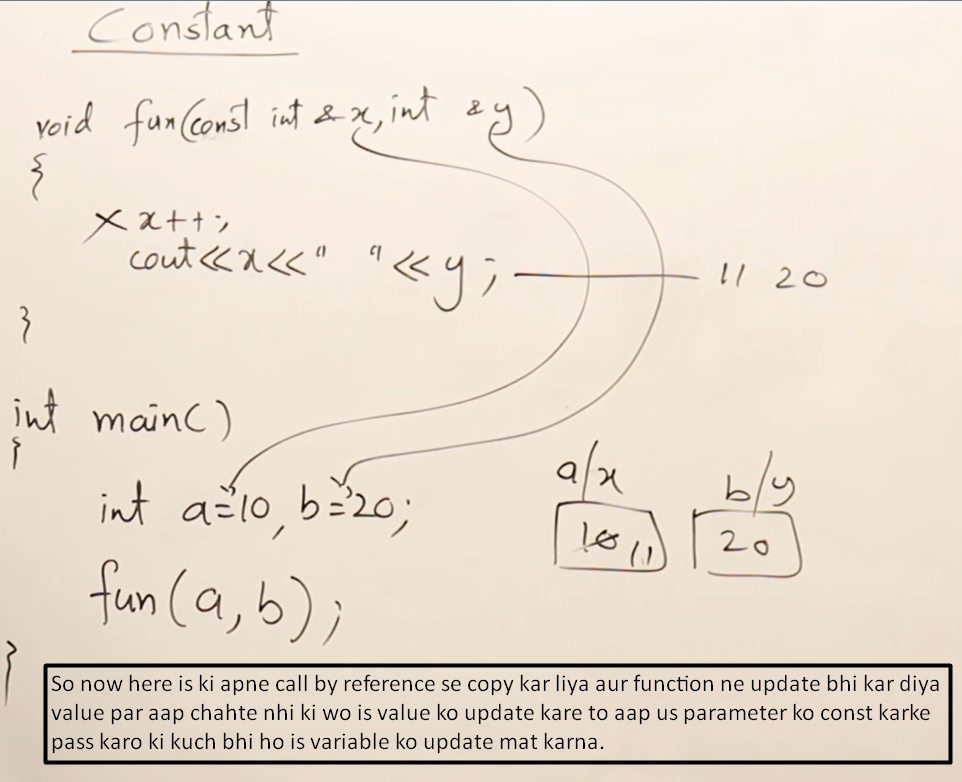 Constant
void fun(const int &x, int &y)
{
× x++;
cout<<x<<" "<<y; 11 20
}
int main()
{
a/x b/y
int a=10, b=20;
10 11 20
fun(a, b);
}
So now here is ki apne call by reference se copy kar liya aur function ne update bhi kar diya
value par aap chahte nhi ki wo is value ko update kare to aap us parameter ko const karke
pass karo ki kuch bhi ho is variable ko update mat karna.